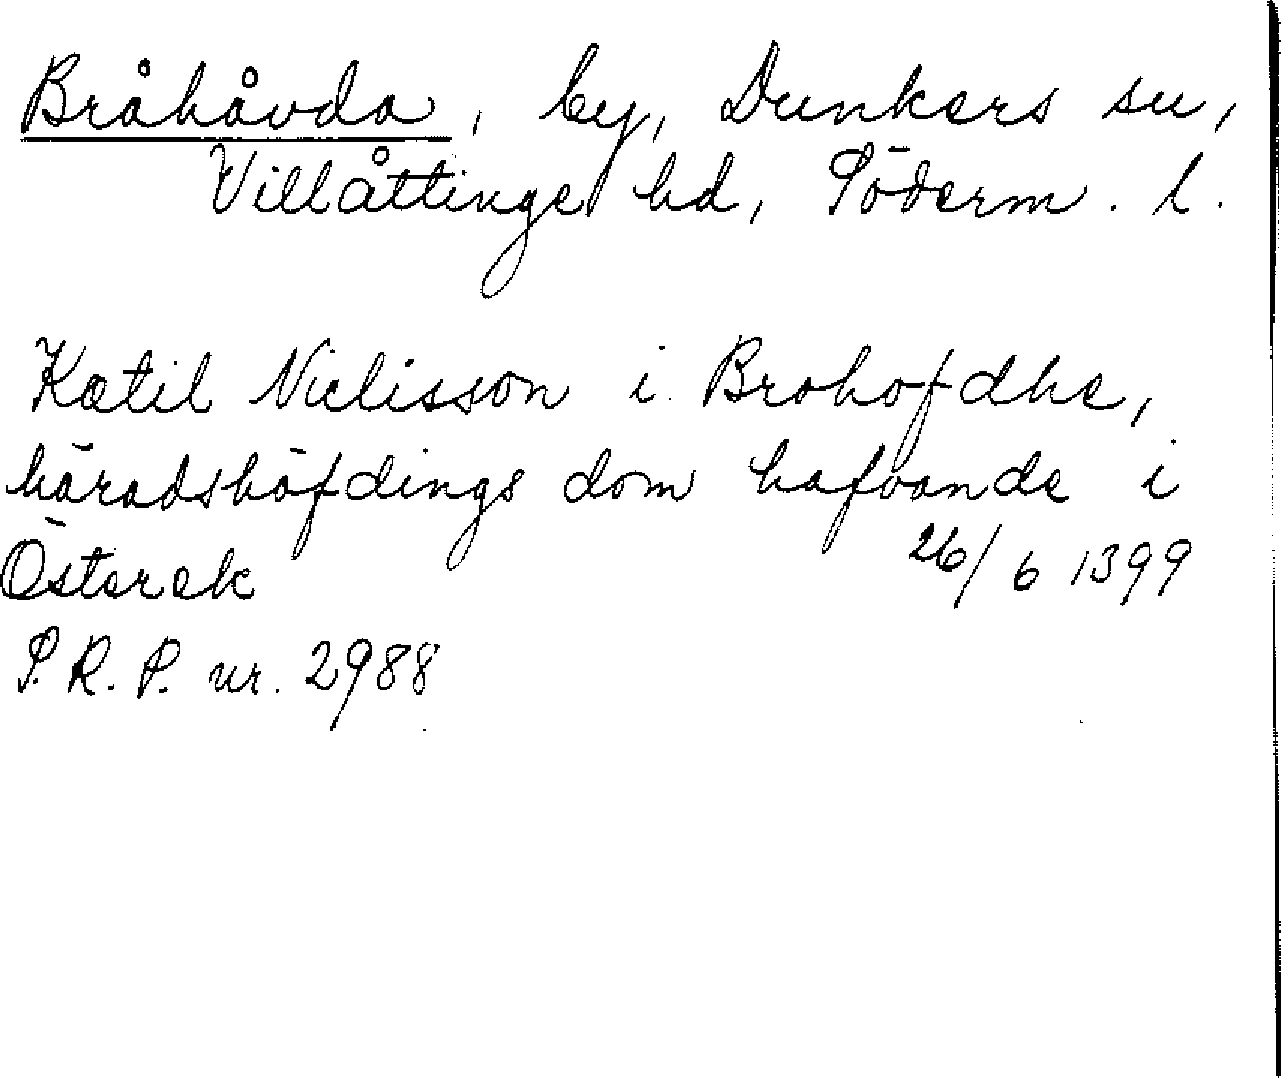 Bråhåvda, by, Dunkers sn,
Villåttinge hd, Söderm. l.
Kætil Niclisson i Brohofdhe,
häradshöfdings dom hafvande i
Österek 26/6 1399
S. R. P. nr. 2988